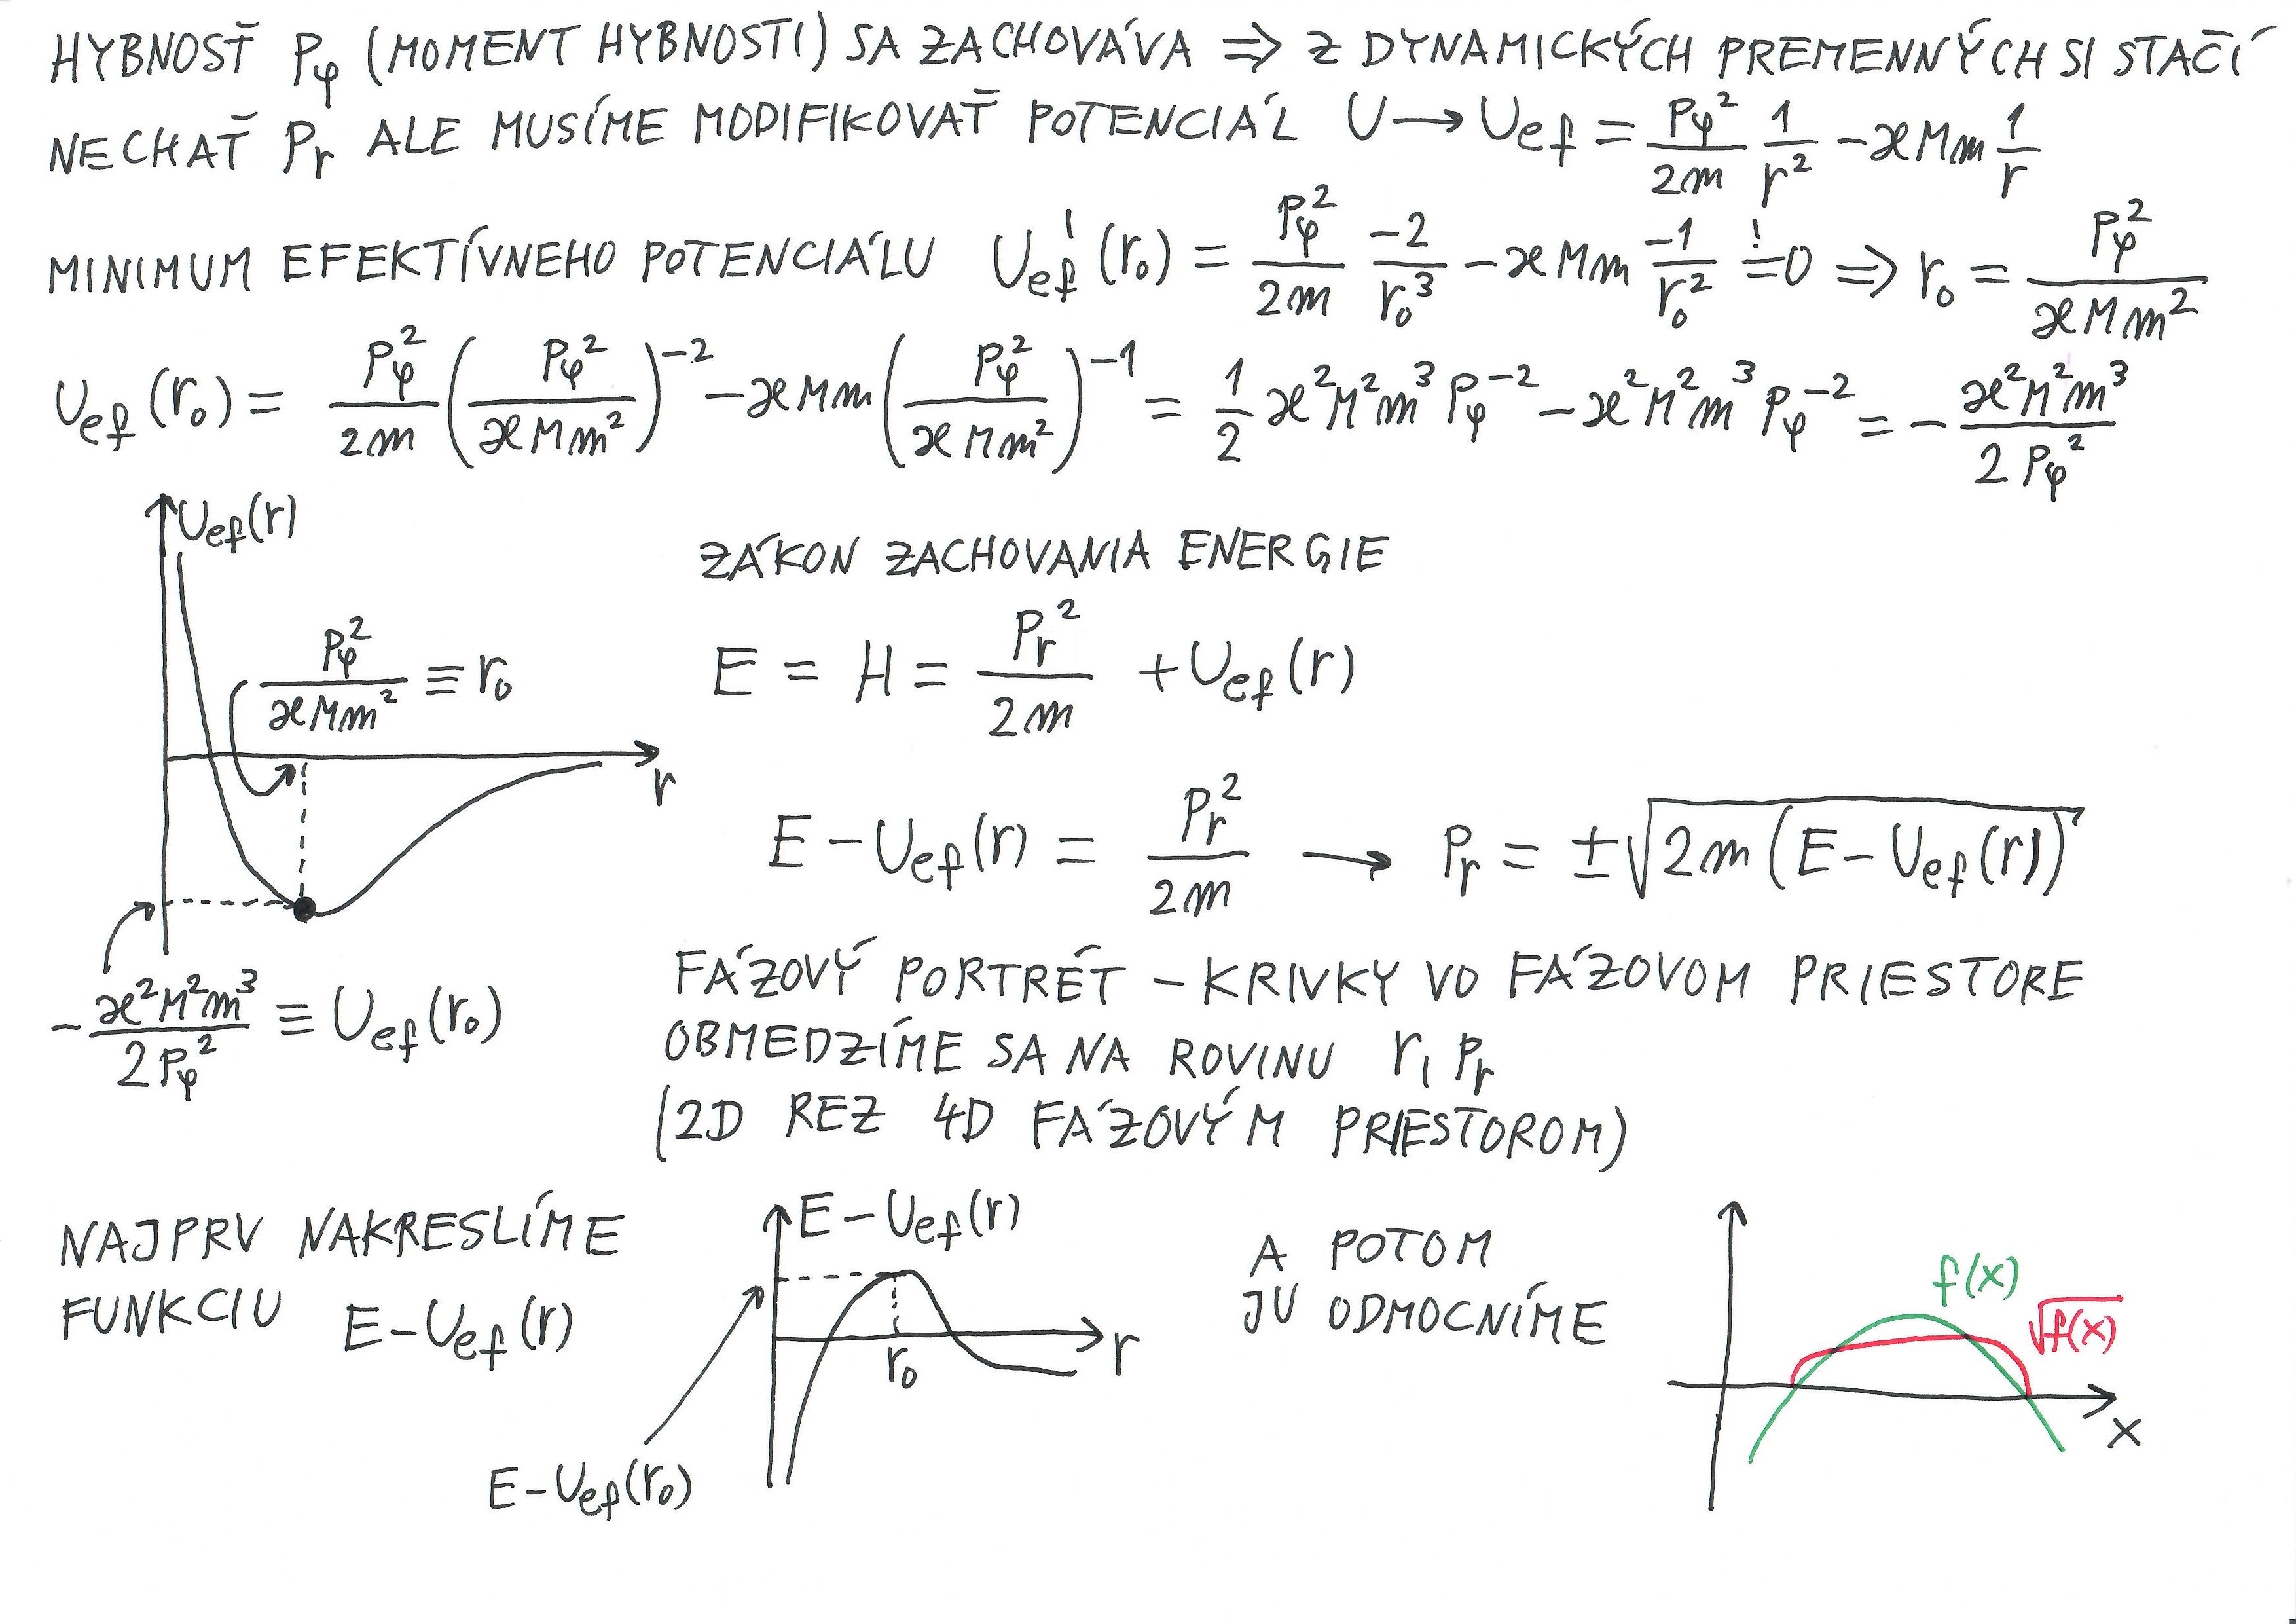 HYBNOSŤ Pφ (MOMENT HYBNOSTI) SA ZACHOVÁVA ⇒ Z DYNAMICKÝCH PREMENNÝCH SI STAČÍ
NECHAŤ Pr ALE MUSÍME MODIFIKOVAŤ POTENCIÁL U → Uef = Pφ²/2m 1/r² − ϰMm 1/r
MINIMUM EFEKTÍVNEHO POTENCIÁLU Uef'(r₀) = Pφ²/2m −2/r₀³ − ϰMm −1/r₀² =! 0 ⇒ r₀ = Pφ²/ϰMm²
Uef(r₀) = Pφ²/2m (Pφ²/ϰMm²)⁻² − ϰMm (Pφ²/ϰMm²)⁻¹ = 1/2 ϰ²M²m³Pφ⁻² − ϰ²M²m³Pφ⁻² = − ϰ²M²m³/2Pφ²
Uef(r)
Pφ²/ϰMm² ≡ r₀
r
−ϰ²M²m³/2Pφ² ≡ Uef(r₀)
ZÁKON ZACHOVANIA ENERGIE
E = H = Pr²/2m + Uef(r)
E − Uef(r) = Pr²/2m → Pr = ±√(2m(E − Uef(r)))
FÁZOVÝ PORTRÉT − KRIVKY VO FÁZOVOM PRIESTORE
OBMEDZÍME SA NA ROVINU r, Pr
(2D REZ 4D FÁZOVÝM PRIESTOROM)
NAJPRV NAKRESLÍME
FUNKCIU E − Uef(r)
E − Uef(r)
r₀
r
E − Uef(r₀)
A POTOM
JU ODMOCNÍME
f(x)
√f(x)
x